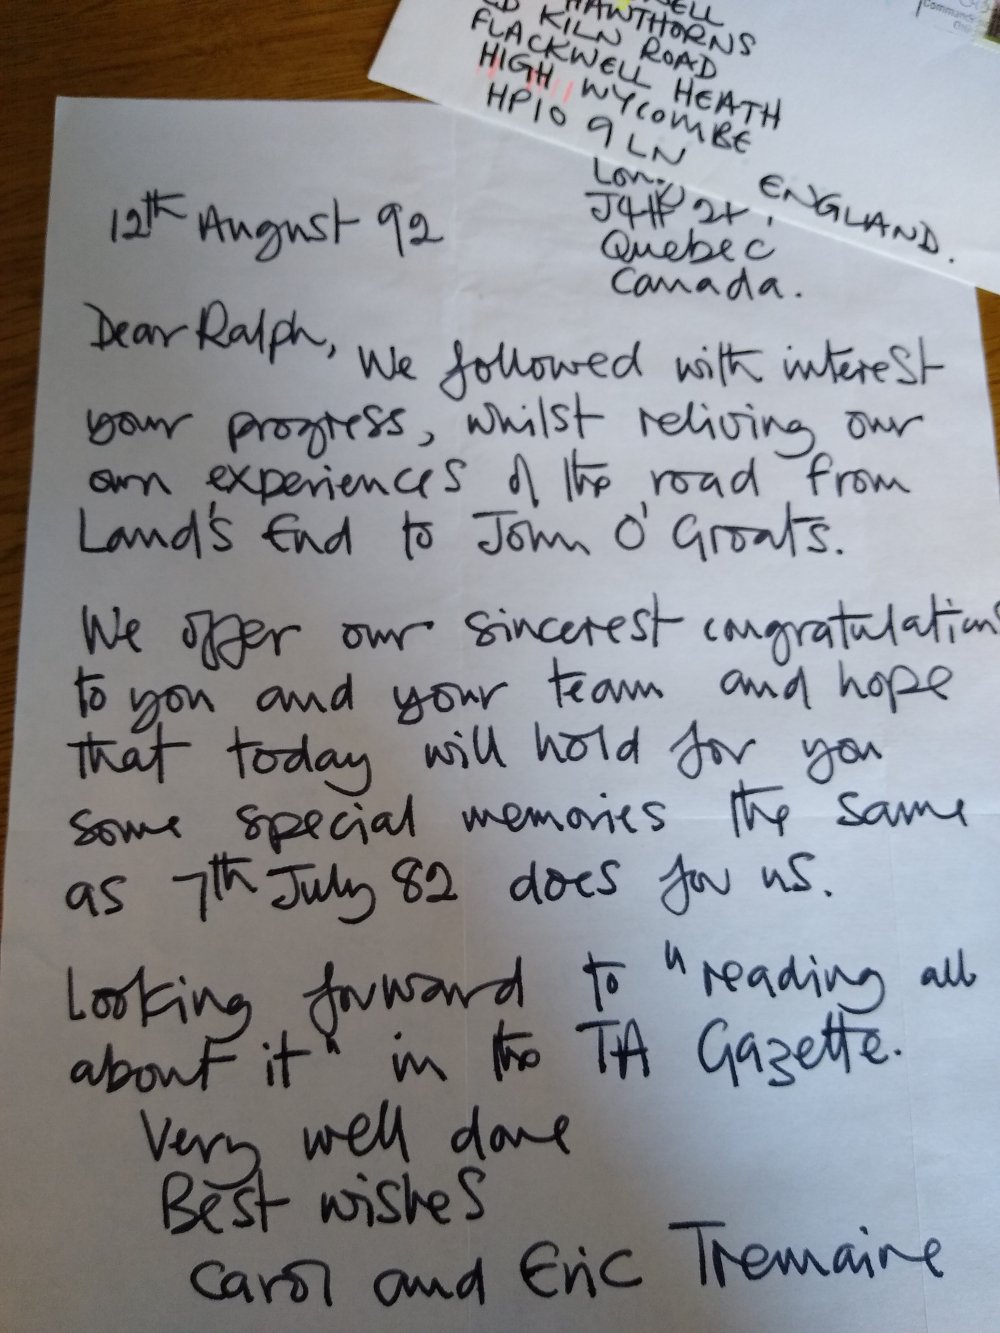 HAWTHORNS
KILN ROAD
FLACKWELL HEATH
HIGH WYCOMBE
HP10 9LN
ENGLAND.
12th August 92
J4H
Quebec
Canada.
Dear Ralph,
We followed with interest
your progress, whilst reliving our
own experiences of the road from
Land's End to John O'Groats.
We offer our sincerest congratulations
to you and your team and hope
that today will hold for you
some special memories the same
as 7th July 82 does for us.
Looking forward to "reading all
about it" in the TA Gazette.
Very well done
Best wishes
Carol and Eric Tremaine